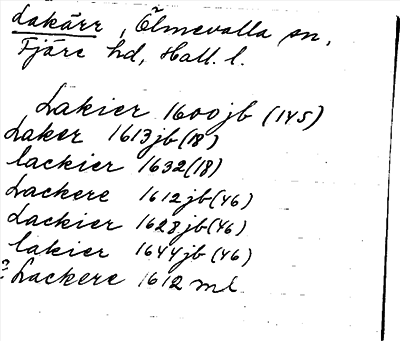 Lakärr, Ölmevalla sn,
Fjäre hd, Hall. l.
Lakier 1600 jb (145)
Laker 1613 jb (18)
lackier 1632 (18)
Lackere 1612 jb (46)
Lackier 1628 jb (46)
lakier 1644 jb (46)
? Lackere 1612 ml